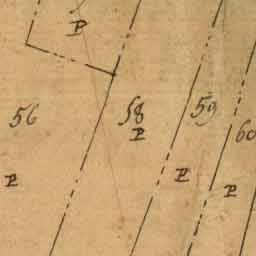 P
56
58
P
59
60
P
P
P